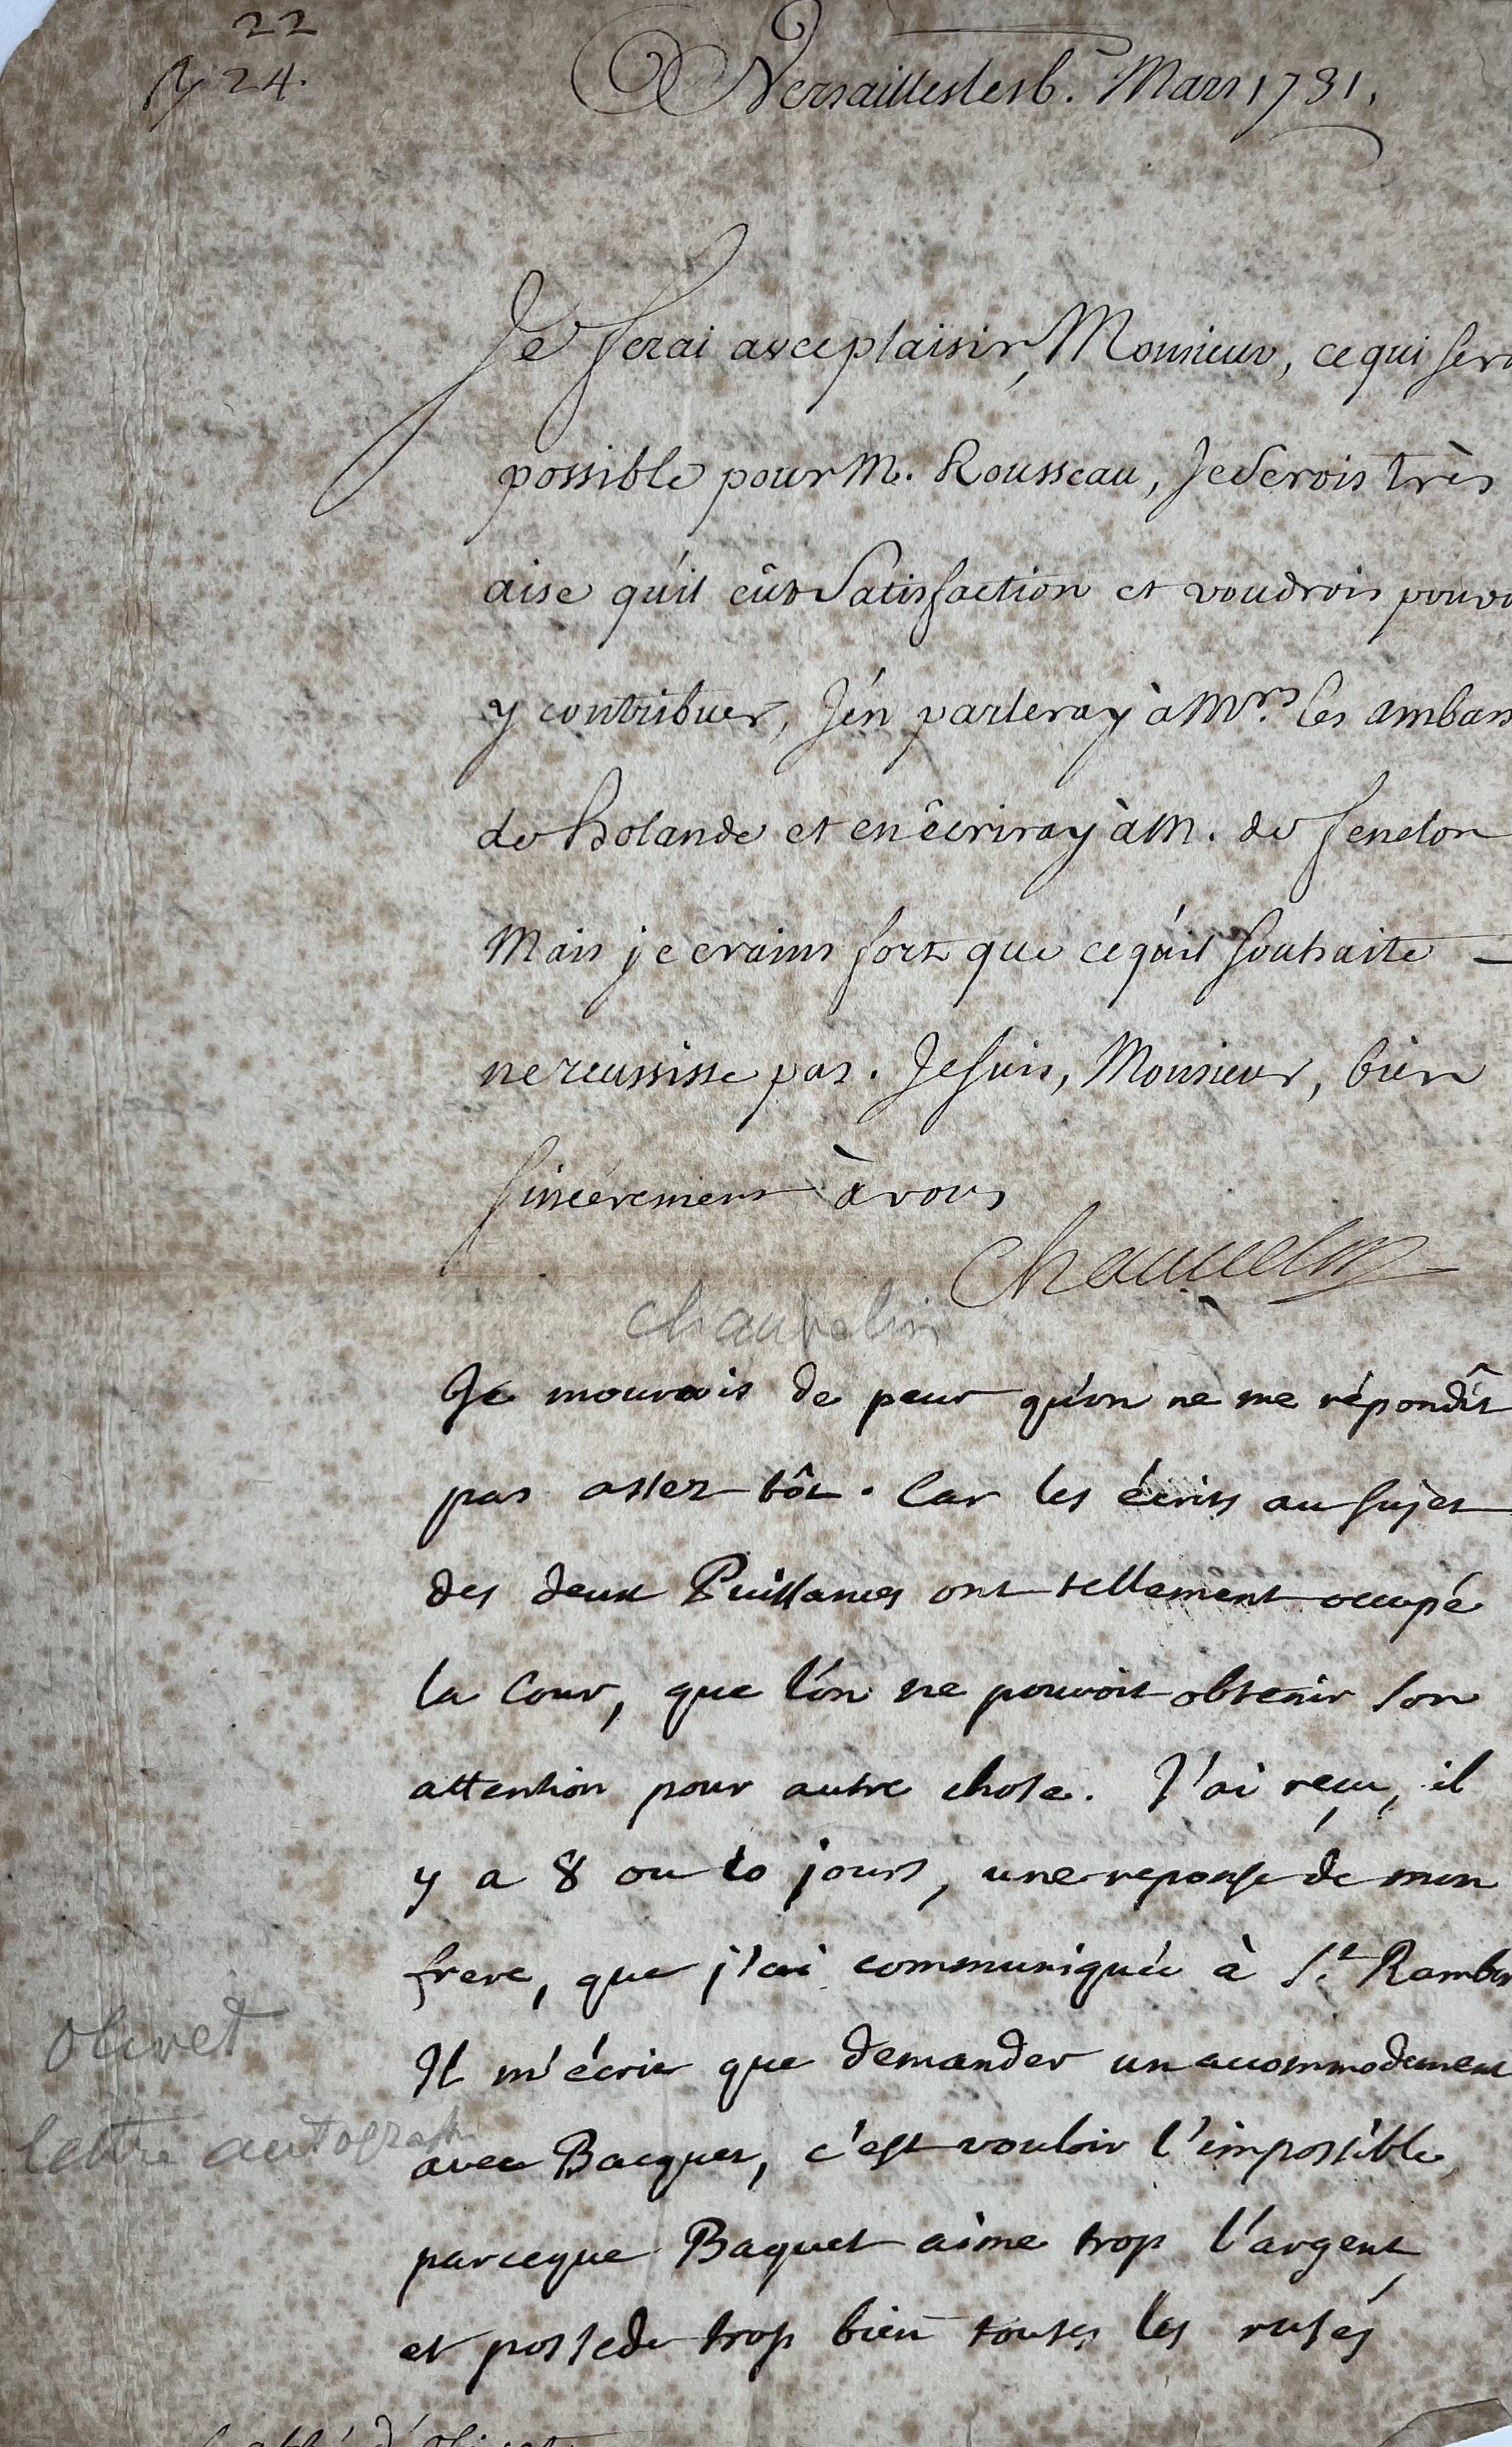 22
Ry 24.
A Versailles le 16. Mars 1731.
Je serai avec plaisir, Monsieur, ce qui sera
possible pour M. Rousseau, Je serois très
aise qu'il eût satisfaction et voudrois pouvo
y contribuer, J'en parleray à Mrs. les ambass
de holande et en écriray à M. de fenelon
Mais je crains fort que ce qu'il souhaite —
ne reussisse pas. Je suis, Monsieur, bien
sincèrement à vous
Chauvelin
chauvelin
Je mourois de peur qu'on ne me répondît
pas assez tôt. Car les écrits au sujet
des deux Puissances ont tellement occupé
la Cour, que l'on ne pouvoit obtenir son
attention pour autre chose. J'ai reçu, il
y a 8 ou 10 jours, une reponse de mon
frere, que j'ai communiquée à St. Rambe
Il m'écrit que demander un accommodement
avec Bacquet, c'est vouloir l'impossible,
parceque Baquet aime trop l'argent,
et possede trop bien toutes les rusés
Olivet
lettre autograph
l'abbé d'Olivet